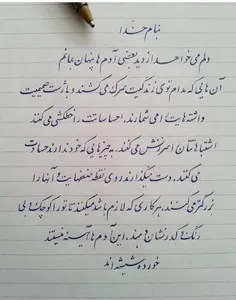 بنام خدا
دلم می خواهد از دید بعضی آدم ها پنهان بمانم
آن هایی که مدام توی زندگیت سرک می کشند و با ژست صمیمیت
داشته هایت را می شمارند، احساساتت را خطکشی می کنند
اشتباهاتت را سرزنش می کنند. به چیزهایی که خود ندارند حسادت
می کنند. دست میگذارند روی نقطه ضعفهایت و آنها را
بزرگتر می کنند، هر کاری که لازم باشد میکنند تا تو را کوچک و بی
رنگ و کدر نشان دهند، این آدم ها آینه نیستند
خورده شیشه اند